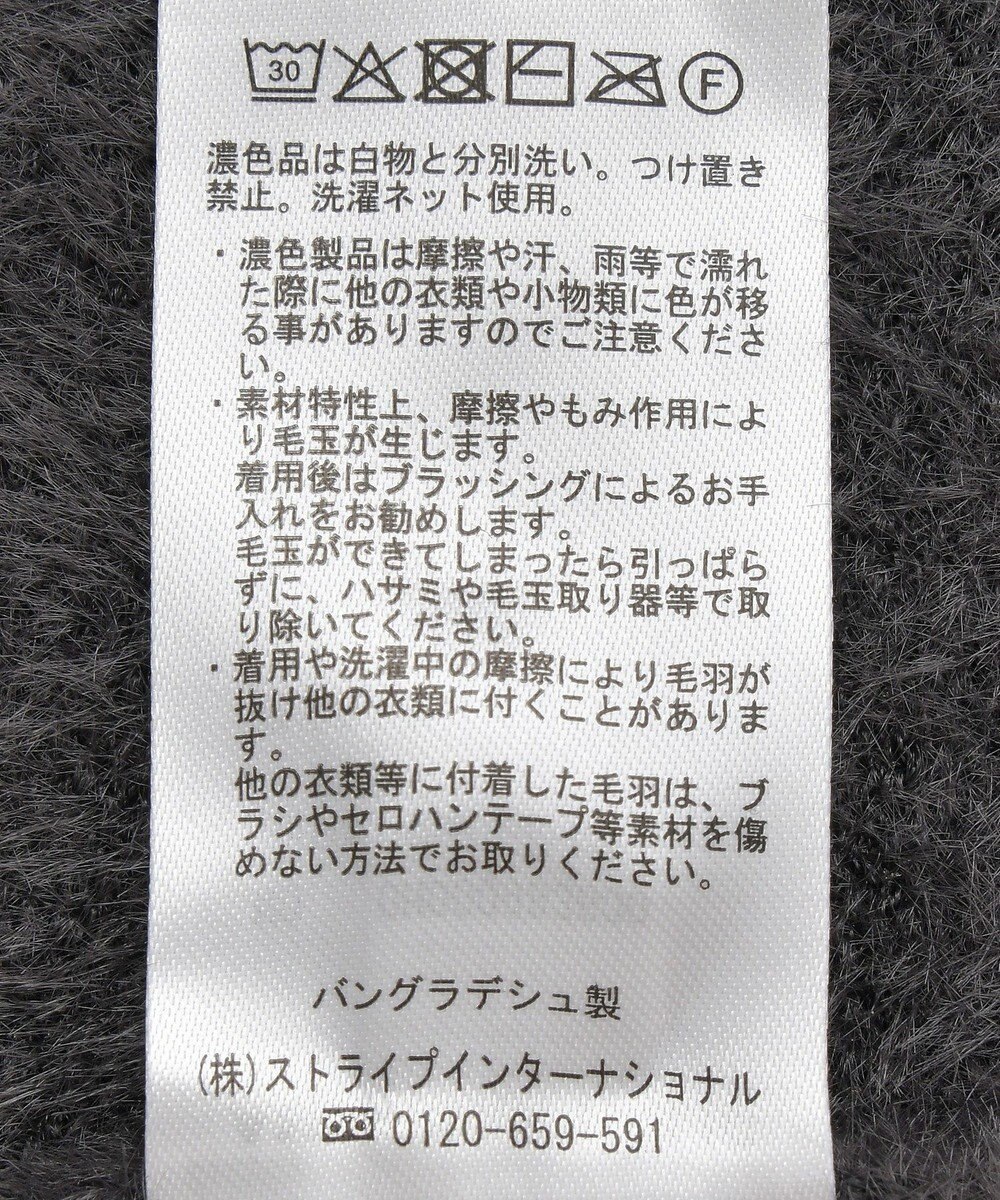 30 F
濃色品は白物と分別洗い。つけ置き
禁止。洗濯ネット使用。
・濃色製品は摩擦や汗、雨等で濡れ
た際に他の衣類や小物類に色が移
る事がありますのでご注意くださ
い。
・素材特性上、摩擦やもみ作用によ
り毛玉が生じます。
着用後はブラッシングによるお手
入れをお勧めします。
毛玉ができてしまったら引っぱら
ずに、ハサミや毛玉取り器等で取
り除いてください。
・着用や洗濯中の摩擦により毛羽が
抜け他の衣類に付くことがありま
す。
他の衣類等に付着した毛羽は、ブ
ラシやセロハンテープ等素材を傷
めない方法でお取りください。
バングラデシュ製
(株)ストライプインターナショナル
0120-659-591